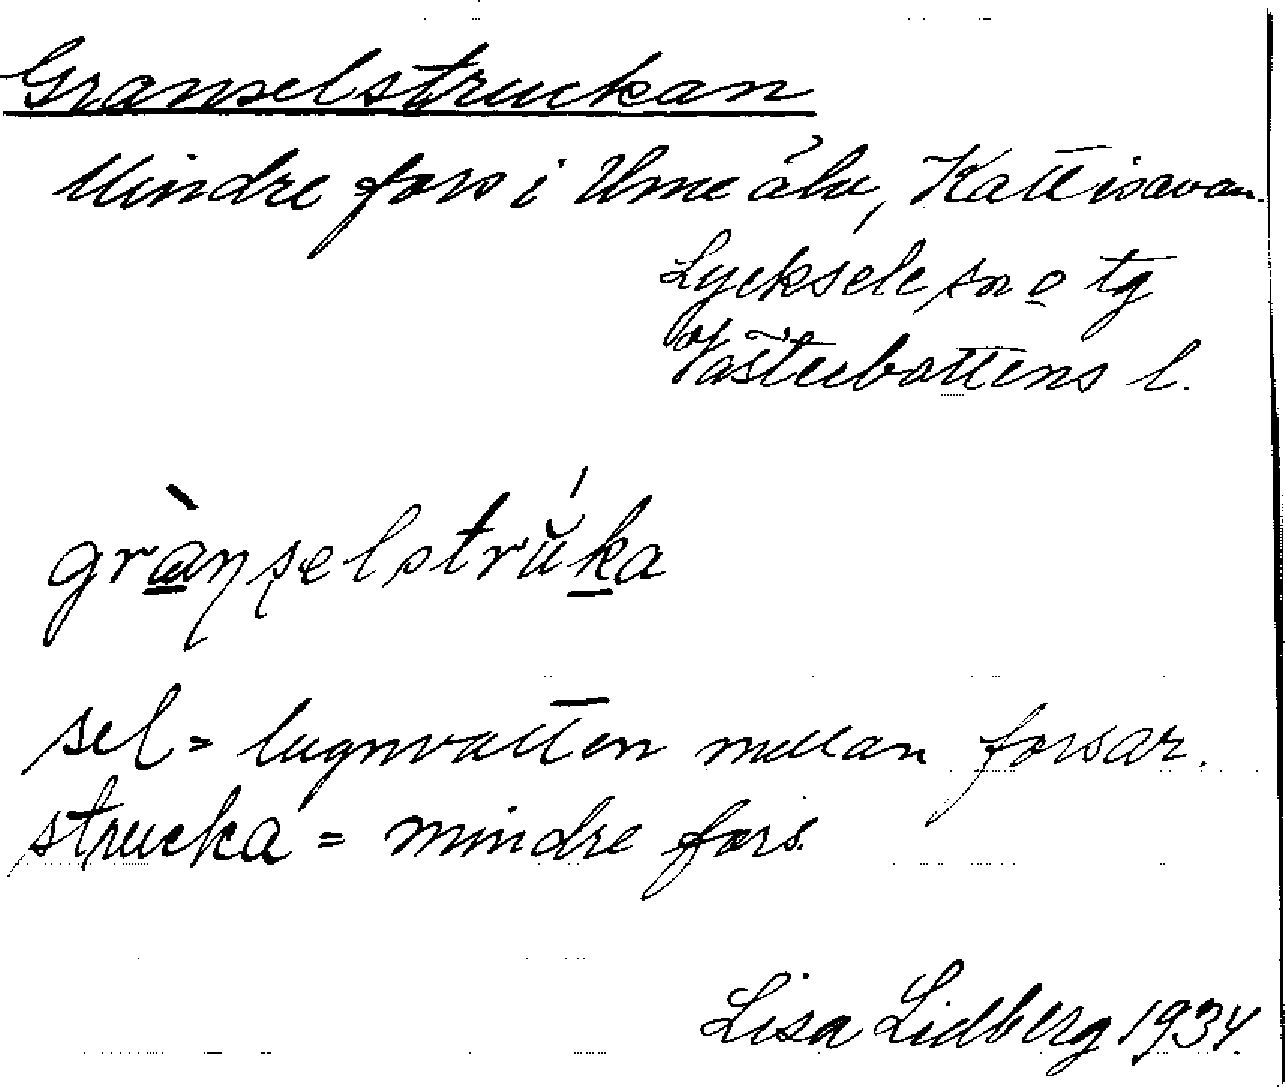 Granselstruckan
Mindre fors i Ume älv, Kattisavan.
Lycksele sn o tg
Västerbottens l.
grànselstrŭ́ka
sel = lugnvatten mellan forsar.
strucka = mindre fors.
Lisa Lidberg 1934.